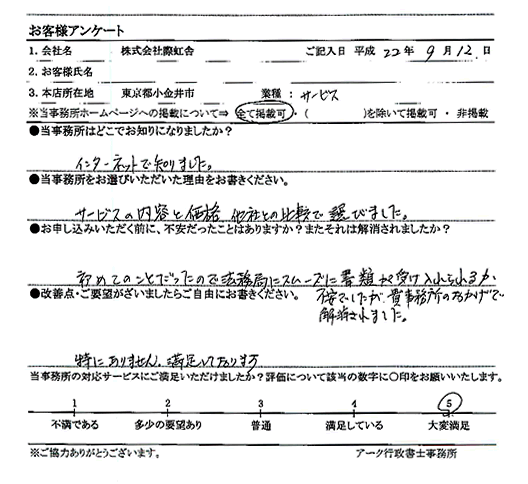 お客様アンケート
1. 会社名 株式会社際虹舎 ご記入日 平成 22年 9月 12日
2. お客様氏名
3. 本店所在地 東京都小金井市 業種： サービス
※当事務所ホームページへの掲載について⇒ 全て掲載可 ・（ ）を除いて掲載可 ・ 非掲載
●当事務所はどこでお知りになりましたか？
インターネットで知りました。
●当事務所をお選びいただいた理由をお書きください。
サービスの内容と価格、他社との比較で選びました。
●お申し込みいただく前に、不安だったことはありますか？またそれは解消されましたか？
初めてのことだったので法務局にスムーズに書類が受け入れられるか
不安でしたが、貴事務所のおかげで
解消されました。
●改善点・ご要望がざいましたらご自由にお書きください。
特にありません。満足しております
当事務所の対応サービスにご満足いただけましたか？評価について該当の数字に〇印をお願いいたします。
1 2 3 4 5
不満である 多少の要望あり 普通 満足している 大変満足
※ご協力ありがとうございます。 アーク行政書士事務所